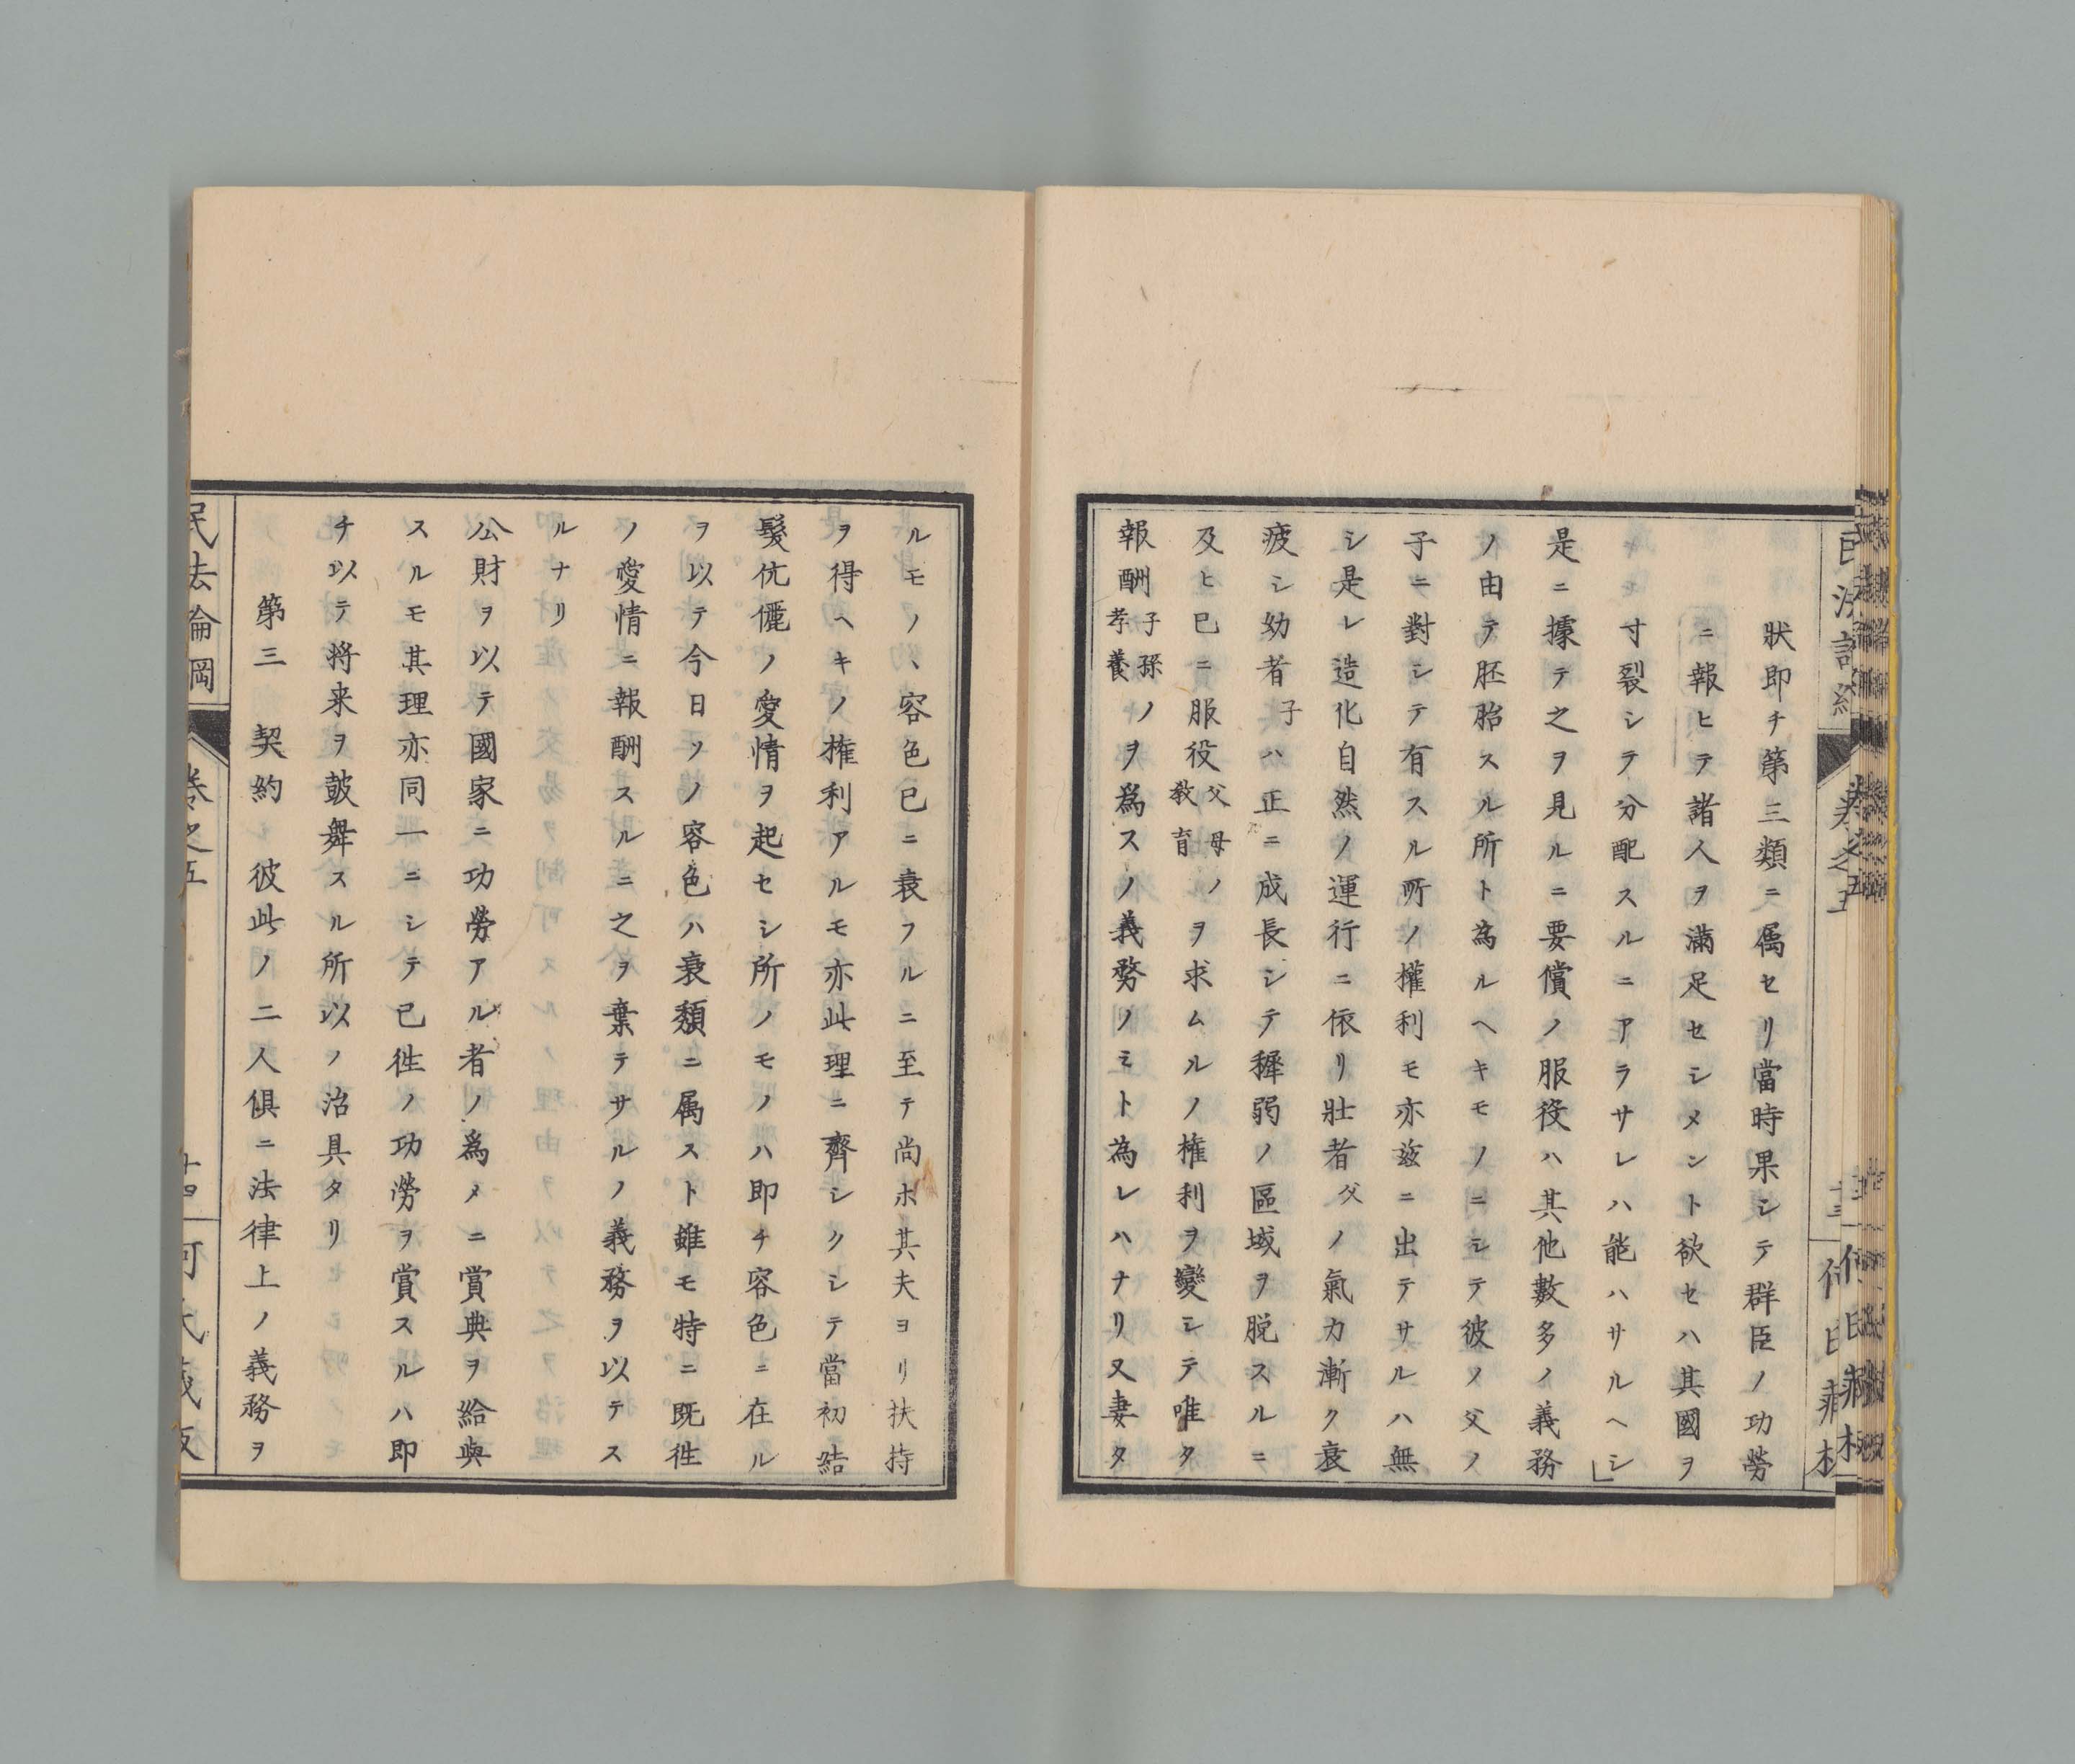 狀即チ第三類ニ屬セリ當時果シテ群臣ノ功勞
ニ報ヒテ諸人ヲ滿足セシメント欲セハ其國ヲ
寸裂シテ分配スルニアラサレハ能ハサルヘシ」
是ニ據テ之ヲ見ルニ要償ノ服役ハ其他數多ノ義務
ノ由テ胚胎スル所ト為ルヘキモノニシテ彼ノ父ノ
子ニ對シテ有スル所ノ權利モ亦茲ニ出テサルハ無
シ是レ造化自然ノ運行ニ依リ壯者父ノ氣力漸ク衰
疲シ幼者子ハ正ニ成長シテ穉弱ノ區域ヲ脱スルニ
及ヒ已ニ服役父母ノ教育ヲ求ムルノ權利ヲ變シテ唯タ
報酬子孫ノ孝養ヲ爲スノ義務ノミト為レハナリ又妻タ
ルモノヽ容色已ニ衰フルニ至テ尚ホ其夫ヨリ扶持
ヲ得ヘキノ權利アルモ亦此理ニ齊シクシテ當初結
髮伉儷ノ愛情ヲ起セシ所ノモノハ即チ容色ニ在ル
ヲ以テ今日ソノ容色ハ衰頽ニ属スト雖モ特ニ既徃
ノ愛情ニ報酬スルニ之ヲ棄テサルノ義務ヲ以テス
ルナリ
公財ヲ以テ國家ニ功勞アル者ノ爲メニ賞典ヲ給與
スルモ其理亦同一ニシテ已徃ノ功勞ヲ賞スルハ即
チ以テ将来ヲ皷舞スル所以ノ治具タリ
第三　契約　彼此ノ二人俱ニ法律上ノ義務ヲ
民法論綱　卷之五　十四　何氏藏板